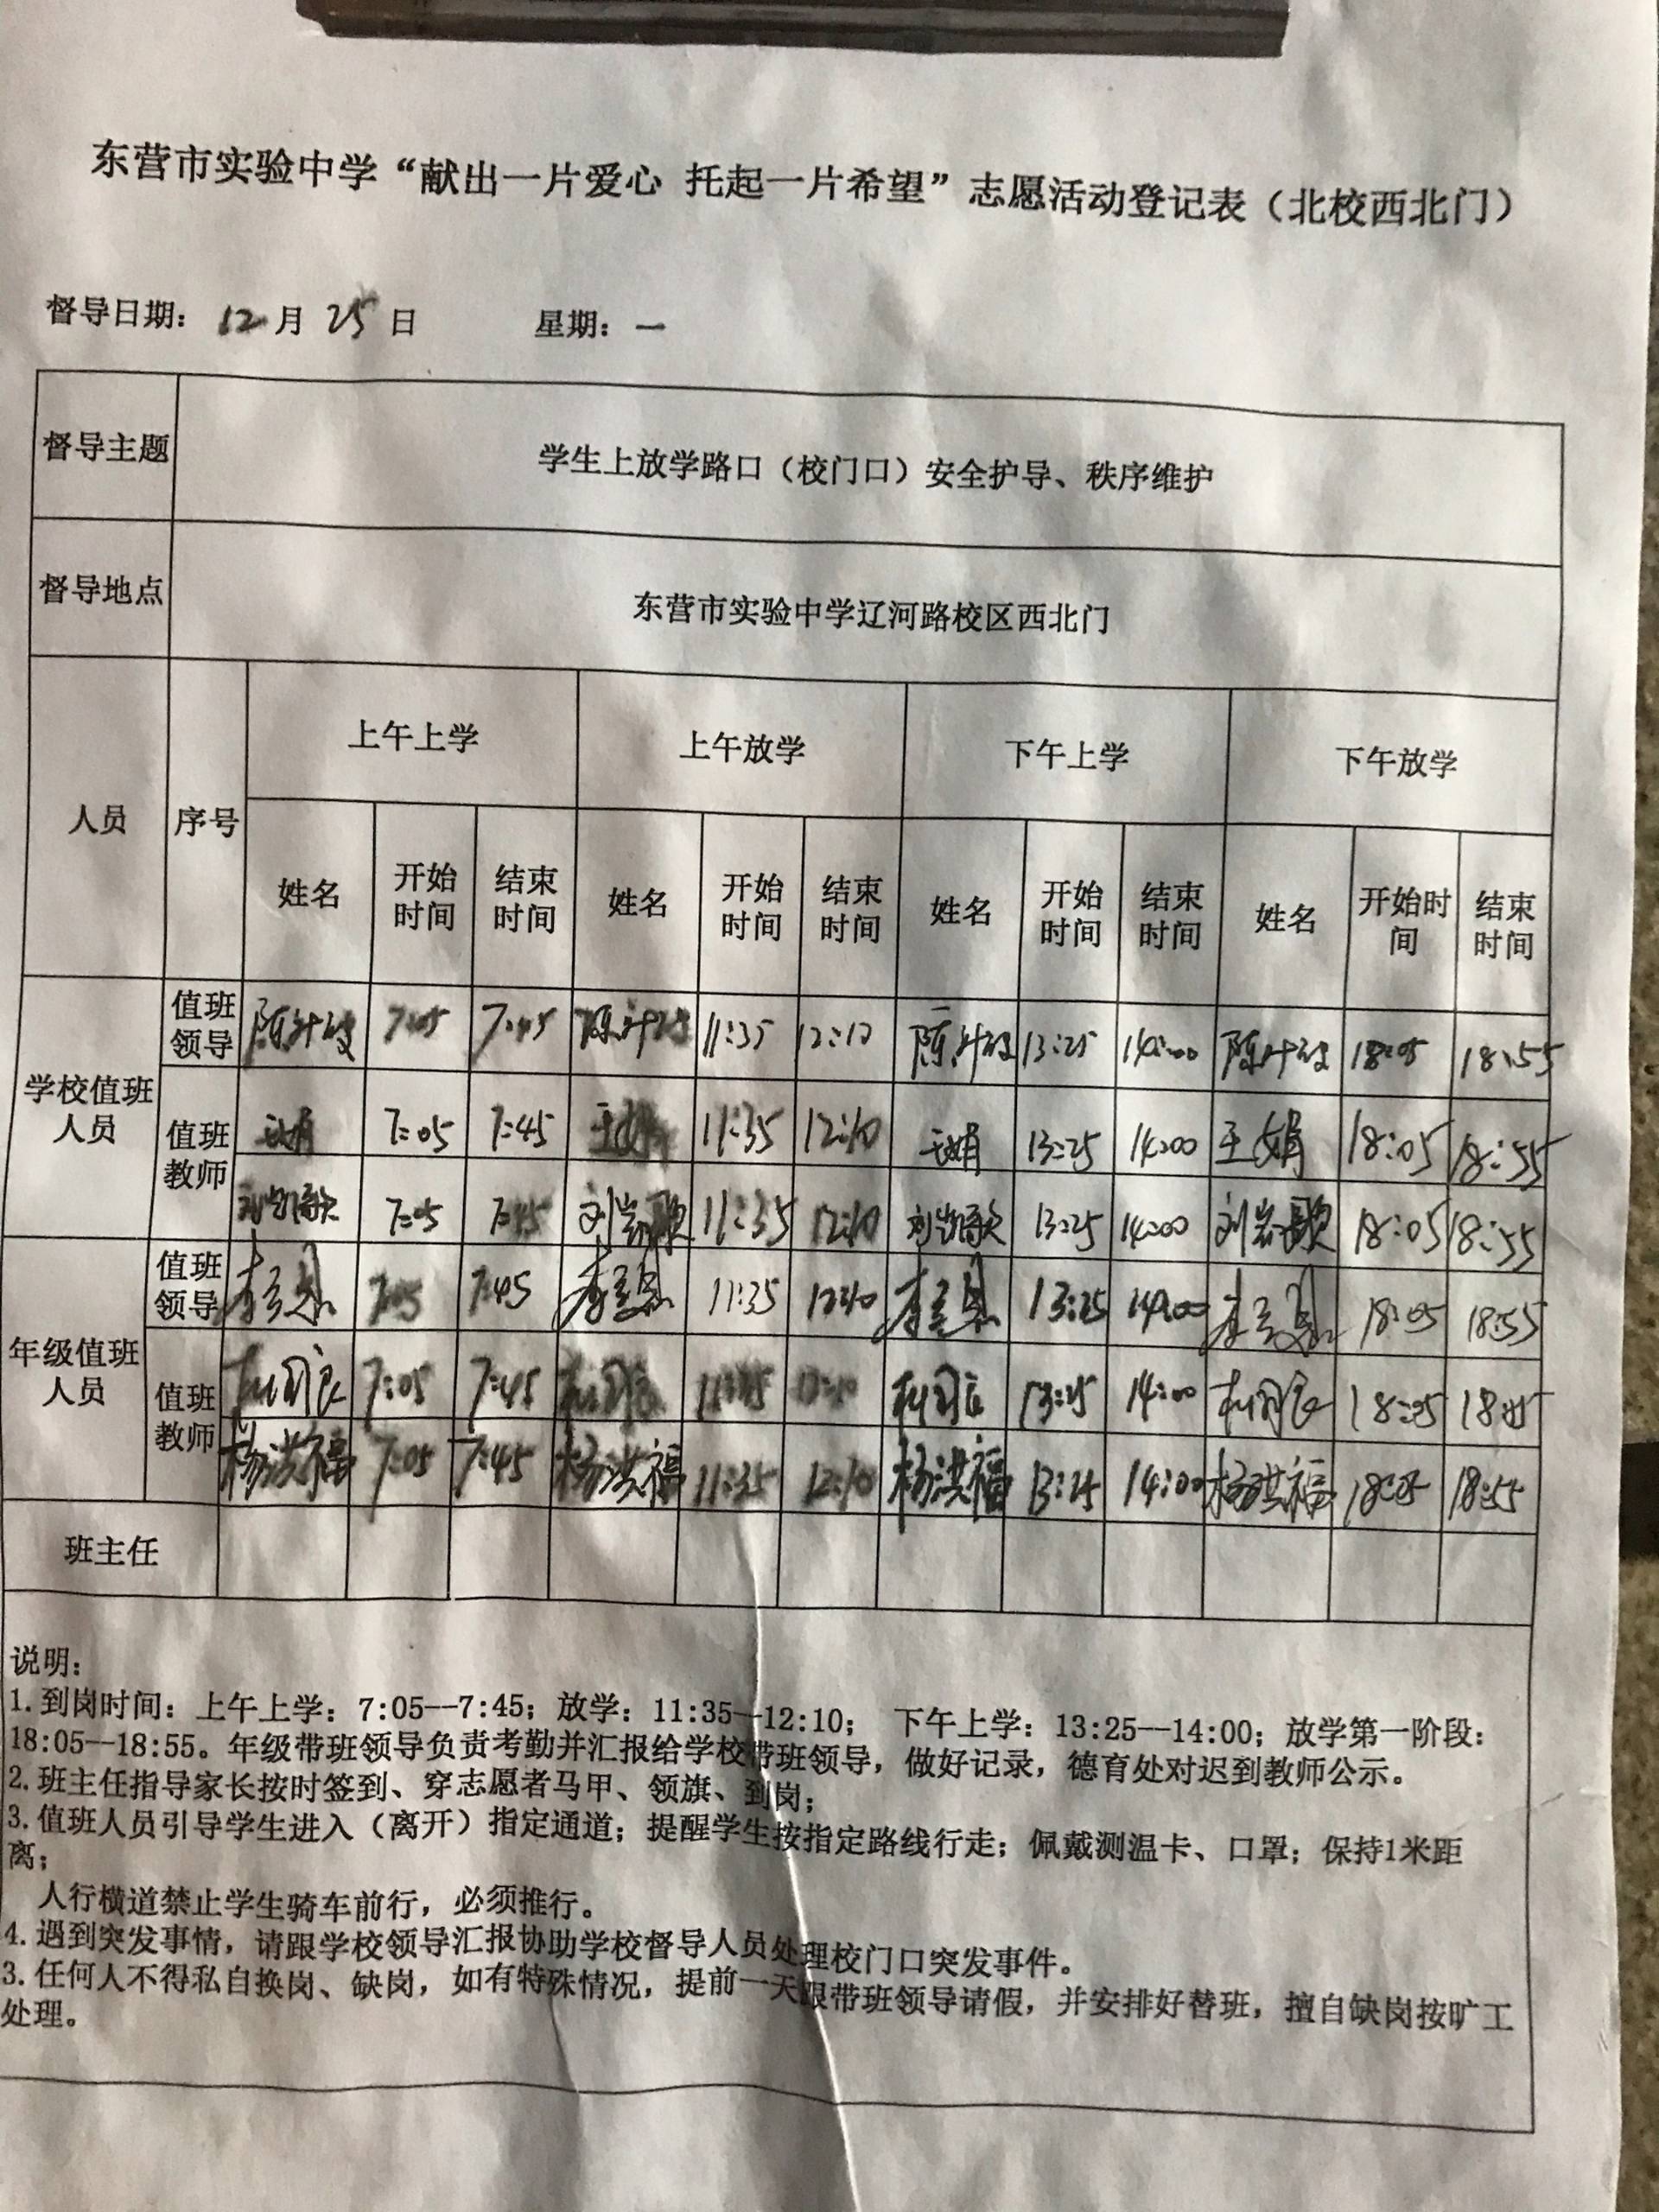 东营市实验中学“献出一片爱心 托起一片希望”志愿活动登记表（北校西北门）
督导日期： 12月 25日 星期：一
督导主题 学生上放学路口（校门口）安全护导、秩序维护
督导地点 东营市实验中学辽河路校区西北门
人员 序号 上午上学 上午放学 下午上学 下午放学
姓名 开始时间 结束时间 姓名 开始时间 结束时间 姓名 开始时间 结束时间 姓名 开始时间 结束时间
学校值班人员 值班领导 7:05 7:45 11:35 12:10 13:25 14:00 18:05 18:55
值班教师 王娟 7:05 7:45 王娟 11:35 12:10 王娟 13:25 14:00 王娟 18:05 18:55
刘凯歌 7:05 7:45 刘凯歌 11:35 12:10 刘凯歌 13:25 14:00 刘凯歌 18:05 18:55
年级值班人员 值班领导 7:05 7:45 11:35 12:10 13:25 14:00 18:05 18:55
值班教师 7:05 7:45 13:25 14:00
杨洪福 7:05 7:45 杨洪福 11:35 12:10 杨洪福 13:25 14:00 杨洪福 18:05 18:55
班主任
说明：
1.到岗时间：上午上学：7:05--7:45；放学：11:35--12:10； 下午上学：13:25--14:00；放学第一阶段：
18:05--18:55。年级带班领导负责考勤并汇报给学校带班领导，做好记录，德育处对迟到教师公示。
2.班主任指导家长按时签到、穿志愿者马甲、领旗、到岗；
3.值班人员引导学生进入（离开）指定通道；提醒学生按指定路线行走；佩戴测温卡、口罩；保持1米距
离；
人行横道禁止学生骑车前行，必须推行。
4.遇到突发事情，请跟学校领导汇报协助学校督导人员处理校门口突发事件。
3.任何人不得私自换岗、缺岗，如有特殊情况，提前一天跟带班领导请假，并安排好替班，擅自缺岗按旷工
处理。